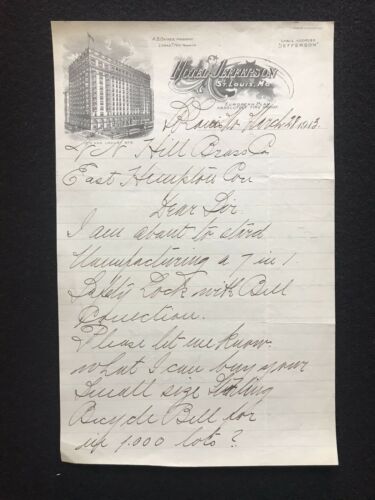 HOTEL JEFFERSON
ST. LOUIS, MO.
EUROPEAN PLAN
CABLE ADDRESS
"JEFFERSON"
St Louis Mo March 28 1913.
N N Hill Brass Co
East Hampton Con
Dear Sir
I am about to start
Manufacturing a 7 in 1
Safety Lock with Bell
Conection.
Please let me know
what I can buy your
Small size
Bicycle Bell for
in 1.000 lots?